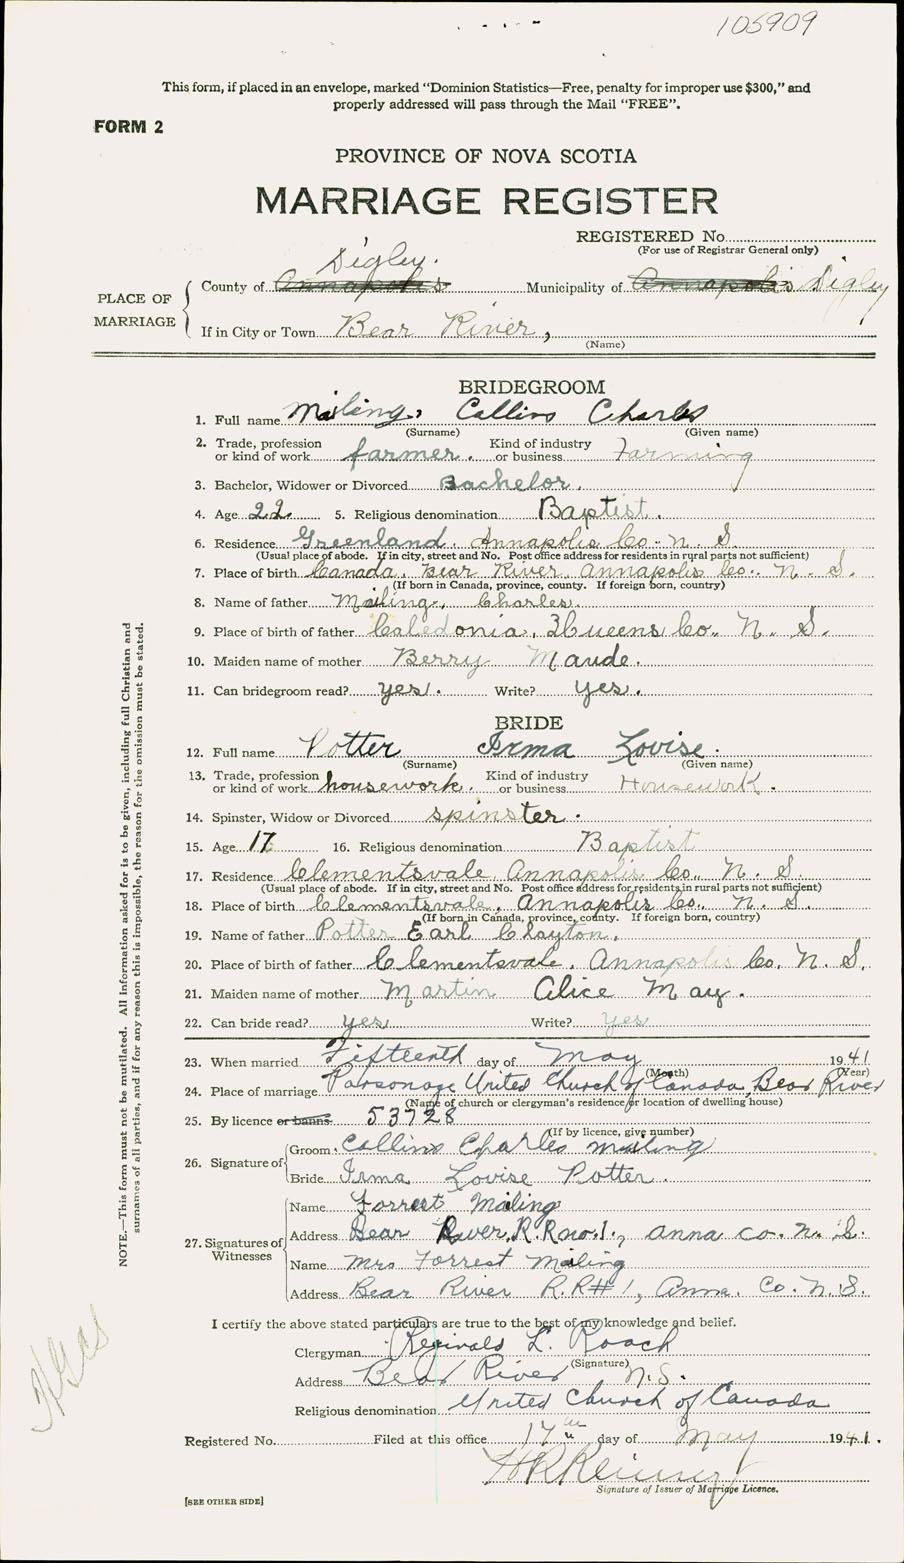 105909
This form, if placed in an envelope, marked "Dominion Statistics—Free, penalty for improper use $300," and
properly addressed will pass through the Mail "FREE".
FORM 2
PROVINCE OF NOVA SCOTIA
MARRIAGE REGISTER
REGISTERED No.
(For use of Registrar General only)
Digby.
PLACE OF MARRIAGE County of Annapolis Municipality of Annapolis Digby
If in City or Town Bear River,
(Name)
BRIDEGROOM
1. Full name Mailing, Collins Charles
(Surname) (Given name)
2. Trade, profession or kind of work farmer. Kind of industry or business Farming
3. Bachelor, Widower or Divorced Bachelor.
4. Age 22 5. Religious denomination Baptist.
6. Residence Greenland, Annapolis Co. N. S.
(Usual place of abode. If in city, street and No. Post office address for residents in rural parts not sufficient)
7. Place of birth Canada, Bear River, Annapolis Co. N. S.
(If born in Canada, province, county. If foreign born, country)
8. Name of father Mailing, Charles.
9. Place of birth of father Caledonia, Queens Co. N. S.
10. Maiden name of mother Berry Maude.
11. Can bridegroom read? yes. Write? yes.
BRIDE
12. Full name Potter Irma Lovise.
(Surname) (Given name)
13. Trade, profession or kind of work housework. Kind of industry or business Housework.
14. Spinster, Widow or Divorced spinster.
15. Age 17 16. Religious denomination Baptist
17. Residence Clementsvale, Annapolis Co., N. S.
(Usual place of abode. If in city, street and No. Post office address for residents in rural parts not sufficient)
18. Place of birth Clementsvale, Annapolis Co., N. S.
(If born in Canada, province, county. If foreign born, country)
19. Name of father Potter Earl Clayton.
20. Place of birth of father Clementsvale, Annapolis Co. N. S.
21. Maiden name of mother Martin Alice May.
22. Can bride read? yes Write? yes
23. When married Fifteenth day of May 1941
(Month) (Year)
24. Place of marriage Parsonage United Church of Canada, Bear River
(Name of church or clergyman's residence or location of dwelling house)
25. By licence or banns 53728
(If by licence, give number)
26. Signature of Groom Collins Charles Mailing
Bride Irma Lovise Potter.
27. Signatures of Witnesses Name Forrest Mailing
Address Bear River, R.R no. 1., Anna Co. N. S.
Name Mrs Forrest Mailing
Address Bear River R.R # 1, Anna. Co. N. S.
I certify the above stated particulars are true to the best of my knowledge and belief.
Clergyman Reginald L. Roach
(Signature)
Address Bear River N.S.
Religious denomination United Church of Canada
Registered No. Filed at this office 17th day of May 1941.
Signature of Issuer of Marriage Licence.
[SEE OTHER SIDE]
NOTE.—This form must not be mutilated. All information asked for is to be given, including full Christian and
surnames of all parties, and if for any reason this is impossible, the reason for the omission must be stated.